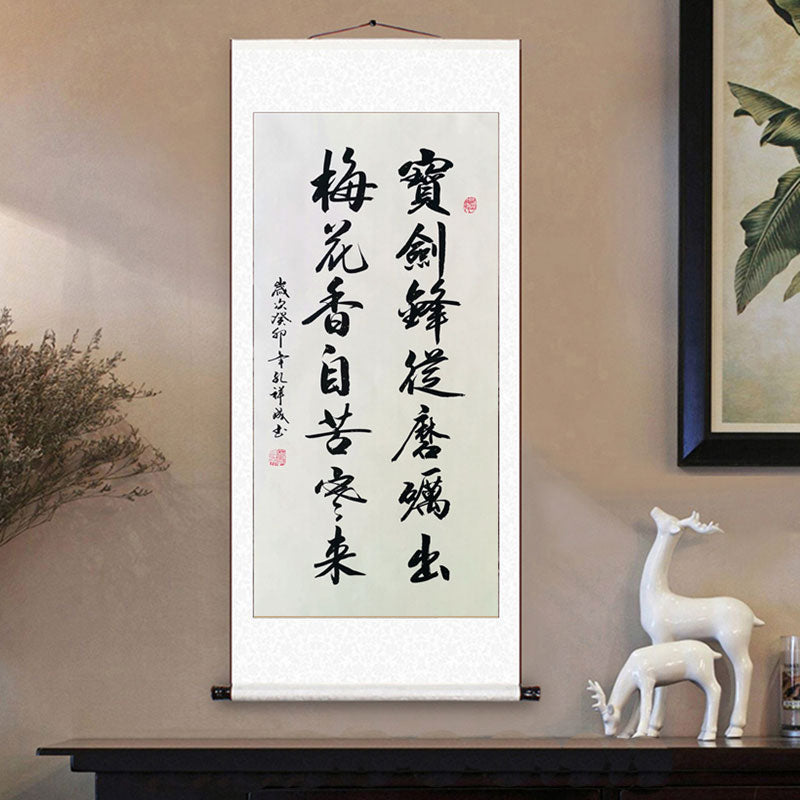 寶劍鋒從磨礪出
梅花香自苦寒来
歲次癸卯年乾祥成书